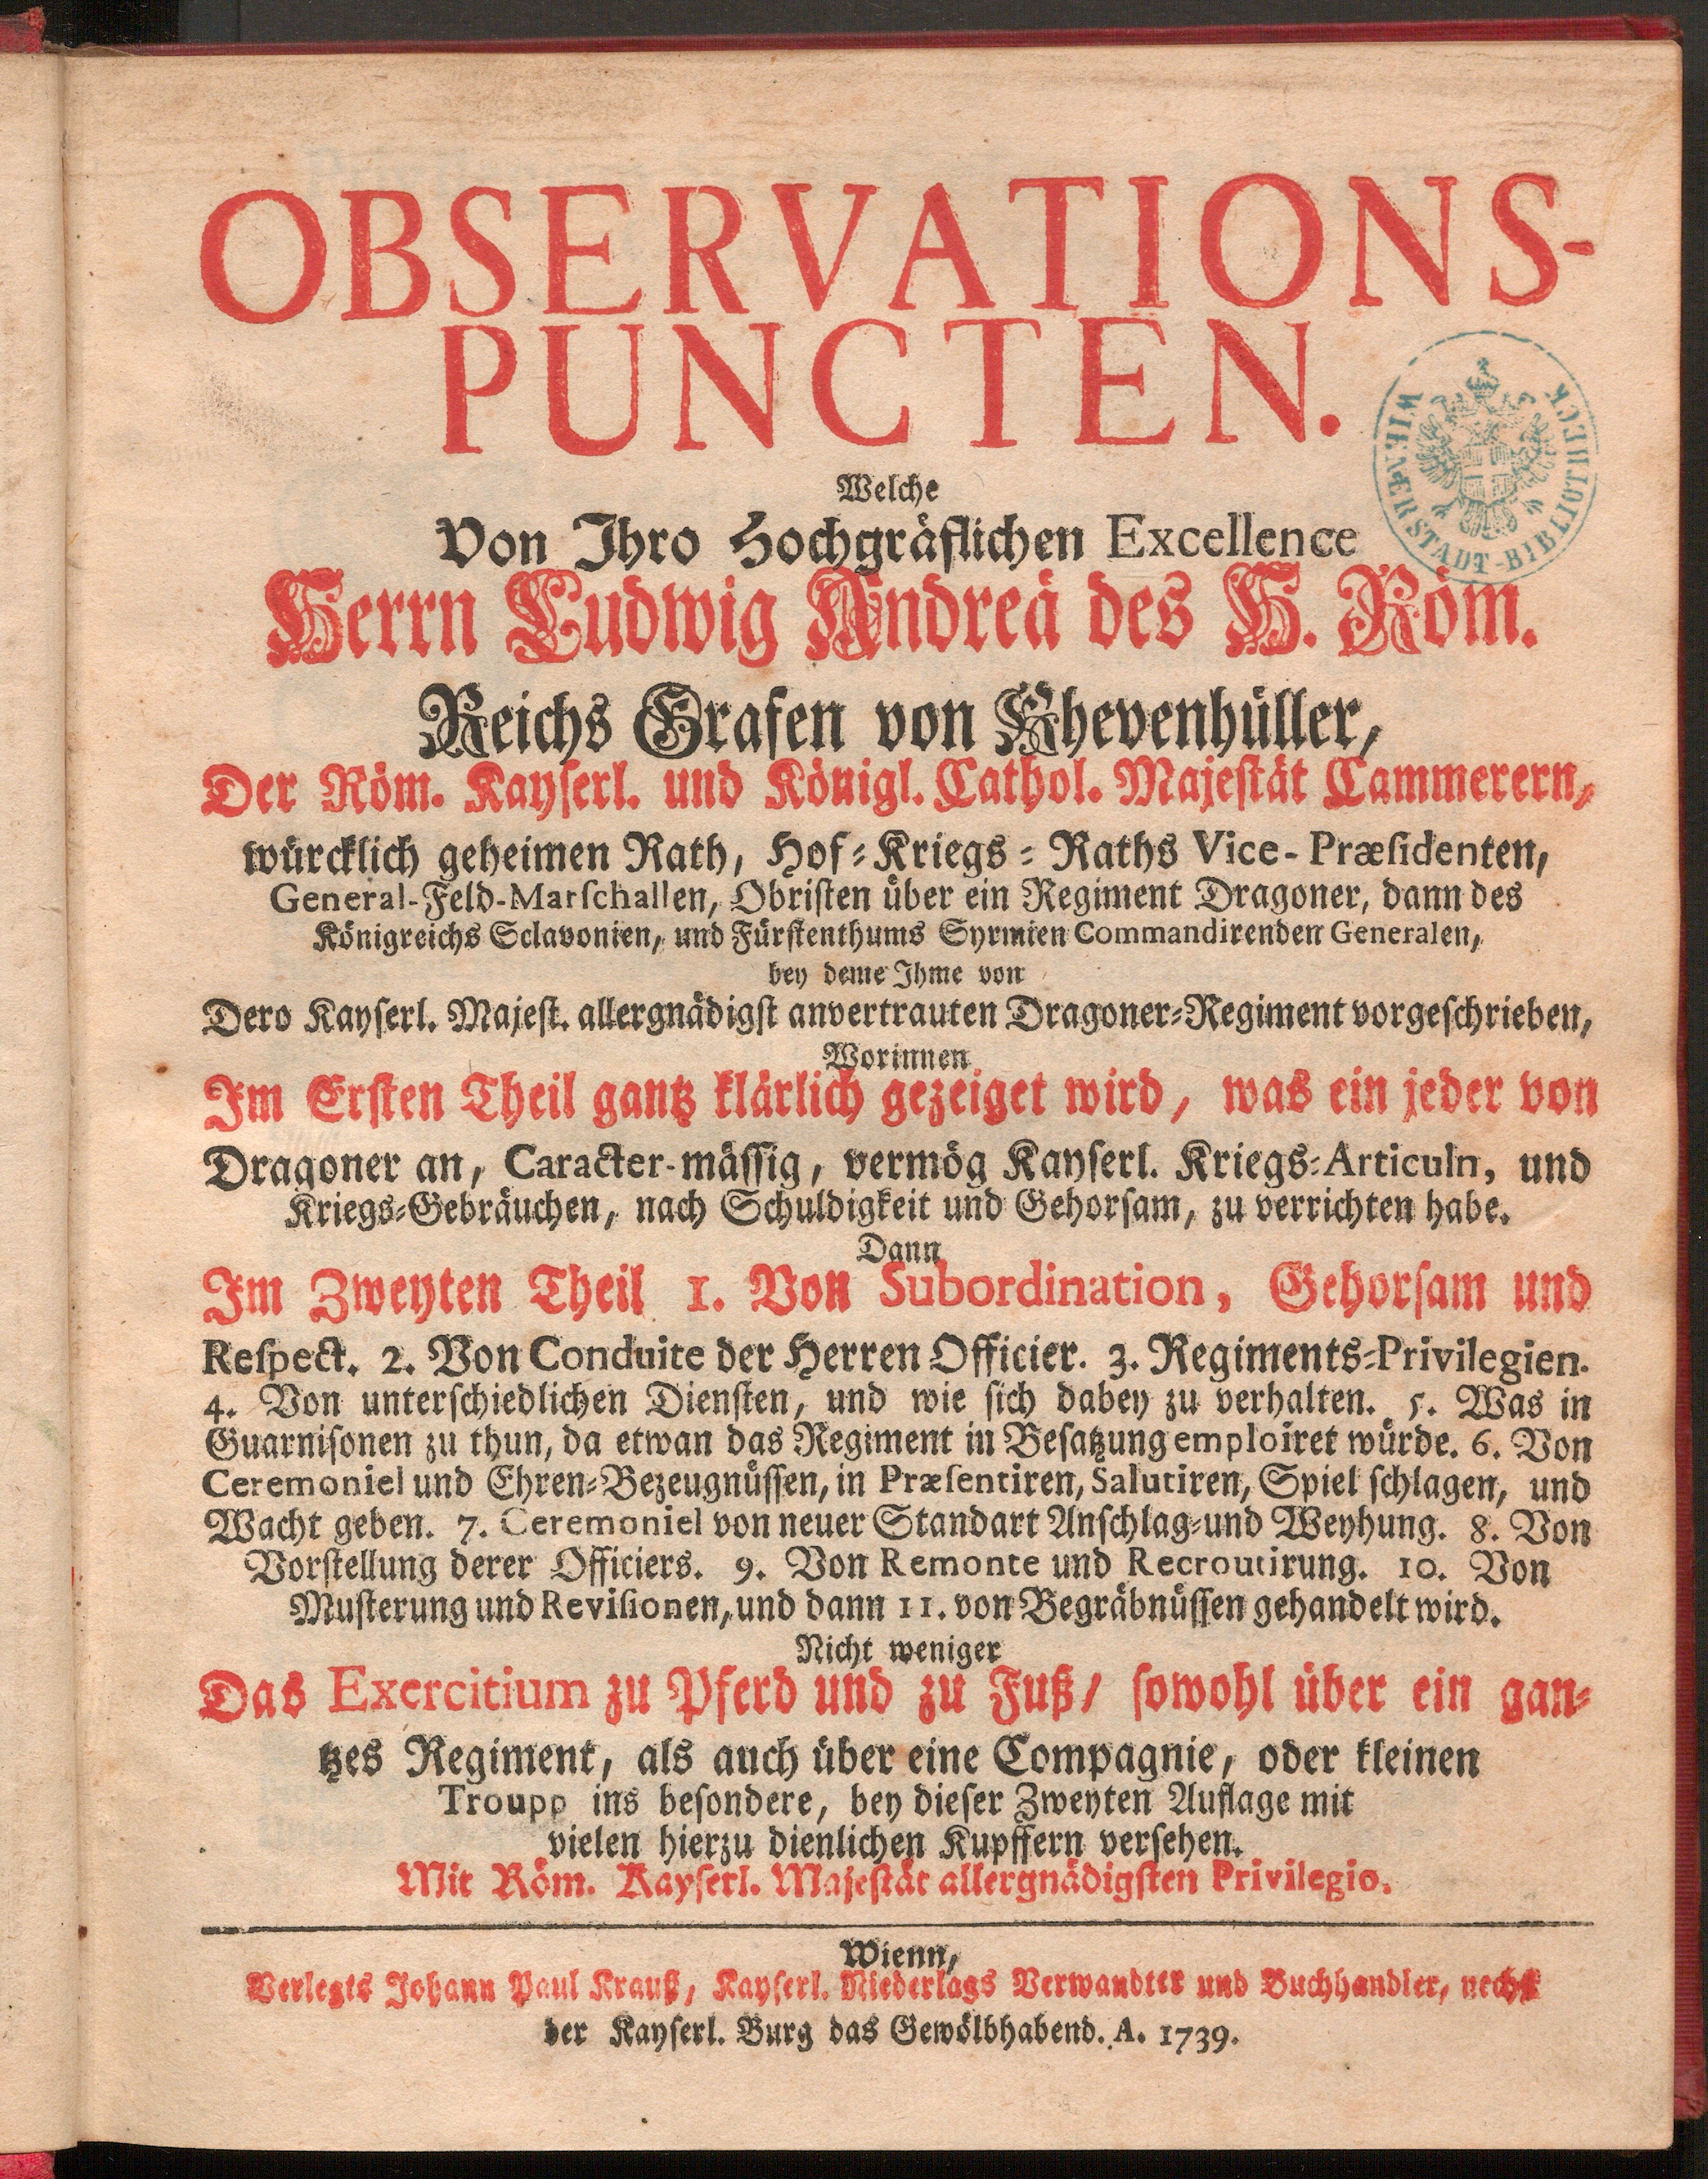 OBSERVATIONS-
PUNCTEN.
Welche
Von Ihro Hochgräflichen Excellence
Herrn Ludwig Andreä des H. Röm.
Reichs Grafen von Khevenhüller,
Der Röm. Kayserl. und Königl. Cathol. Majestät Cammerern,
würcklich geheimen Rath, Hof-Kriegs-Raths Vice-Præsidenten,
General-Feld-Marschallen, Obristen über ein Regiment Dragoner, dann des
Königreichs Sclavonien, und Fürstenthums Syrmien Commandirenden Generalen,
bey deme Ihme von
Dero Kayserl. Majest. allergnädigst anvertrauten Dragoner-Regiment vorgeschrieben,
Worinnen
Im Ersten Theil gantz klärlich gezeiget wird, was ein jeder von
Dragoner an, Caracter-mässig, vermög Kayserl. Kriegs-Articuln, und
Kriegs-Gebräuchen, nach Schuldigkeit und Gehorsam, zu verrichten habe.
Dann
Im Zweyten Theil 1. Von Subordination, Gehorsam und
Respect. 2. Von Conduite der Herren Officier. 3. Regiments-Privilegien.
4. Von unterschiedlichen Diensten, und wie sich dabey zu verhalten. 5. Was in
Guarnisonen zu thun, da etwan das Regiment in Besatzung emploiret würde. 6. Von
Ceremoniel und Ehren-Bezeugnüssen, in Præsentiren, Salutiren, Spiel schlagen, und
Wacht geben. 7. Ceremoniel von neuer Standart Anschlag-und Weyhung. 8. Von
Vorstellung derer Officiers. 9. Von Remonte und Recroutirung. 10. Von
Musterung und Revisionen, und dann 11. von Begräbnüssen gehandelt wird.
Nicht weniger
Das Exercitium zu Pferd und zu Fuß/ sowohl über ein gan-
tzes Regiment, als auch über eine Compagnie, oder kleinen
Troupp ins besondere, bey dieser Zweyten Auflage mit
vielen hierzu dienlichen Kupffern versehen.
Mit Röm. Kayserl. Majestät allergnädigsten Privilegio.
Wienn,
Verlegts Johann Paul Krauß, Kayserl. Niederlags Verwandter und Buchhandler, nechst
der Kayserl. Burg das Gewölbhabend. A. 1739.
WIENER STADT-BIBLIOTHECK